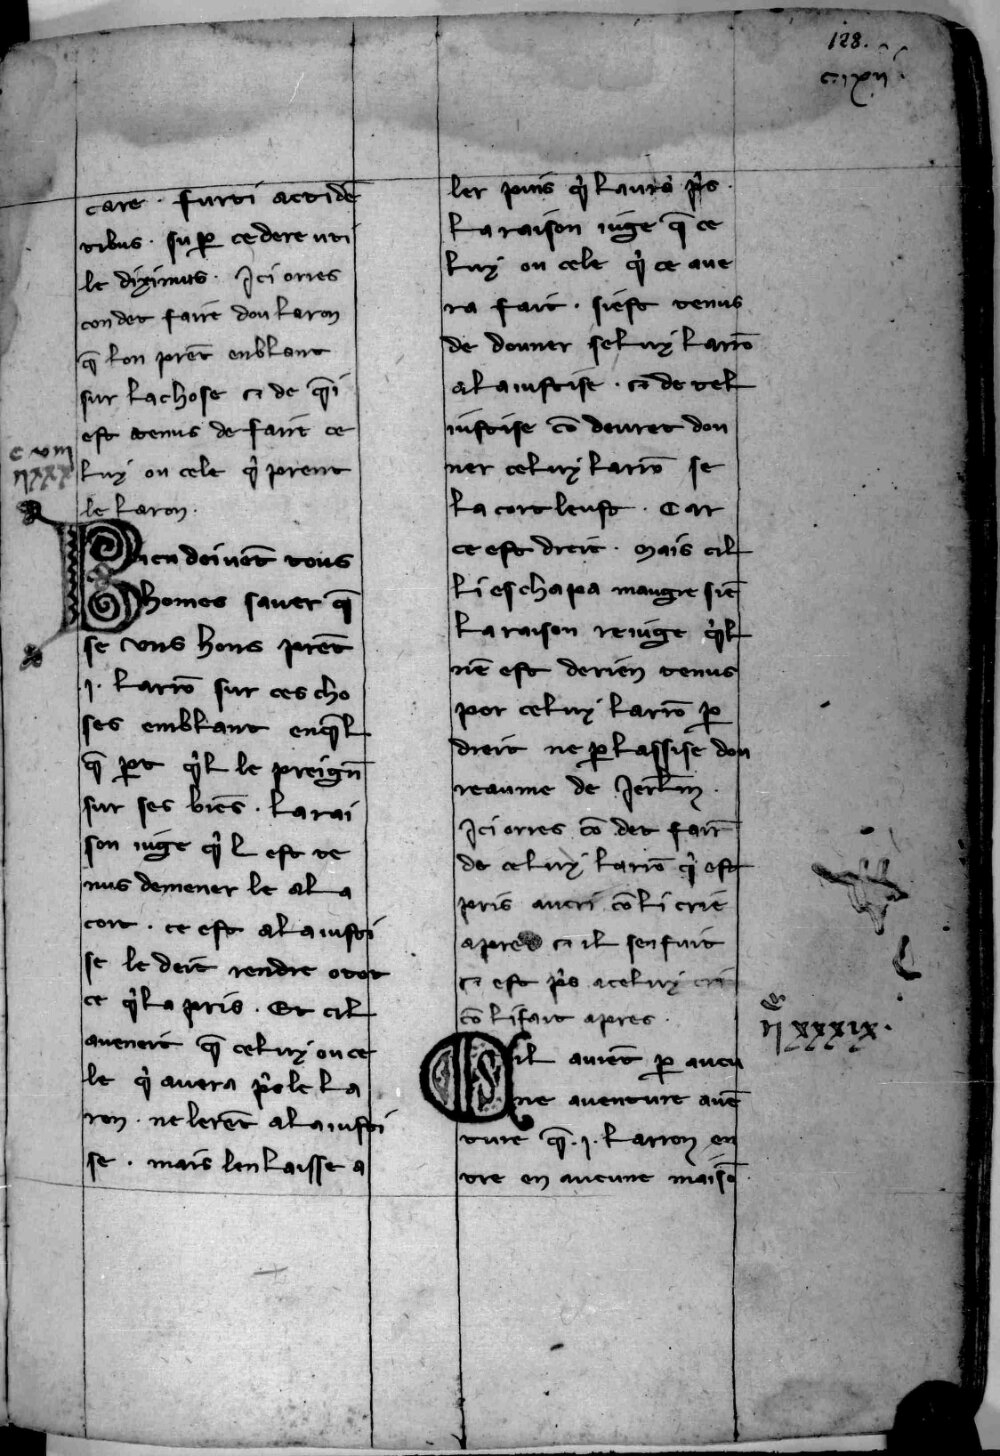 128.
care · furti actidē
tibus · sup̱ cedere uti
le diximus · Ici orres
con det faire dou laron
q̄ lon prēt enblant
sur la chose ⁊ de q̄i
est tenus de faire ce
luy ou cele q̓ prent
le laron.
c viii
ııxxx
Bien doivēt tous
homes saver q̄
se uns hons prēt
·i· larrō sur ces cho
ses emblant enq̄l
q̄ part q̓l le preign̄
sur ses biēs · la rai
son iuge q̓l est te
nus demener le a la
cort · ce est a la iusti
se le deit rendre o tot
ce q̓l a pris · Et cil
avenoit q̄ celuy ou ce
le q̓ avera p̓s le la
ron · ne lerēt a la iusti
se · mais len laisse a
ler puis q̓l auro p̓s ·
la raison iuge q̄ ce
luy ou cele q̓ ce ave
ra fait · si est tenus
de douner seluy larrō
a la iustise · ⁊ de tel
iustise cō douret don
ner celuy larrō se
la cort leust · Car
ce est dreit · Mais cil
li eschapa maugre siē
la raison reiuge q̓l
nē est de rien tenus
por celuy larrō p̱
dreit ne p̱ lassise dou
reaume de Ierlm̄ ·
Ici orres cō det fair̄
de celuy larrō q̓ est
pris au cri cō li crie
apres ⁊ il senfuit
⁊ est p̓s a celuy cri
cō li fait apres ·
ıı xxxix ·
Sil aviēt p̱ aucu
ne aventure avē
ture q̄ ·i· larron en
tre en aucune maisō